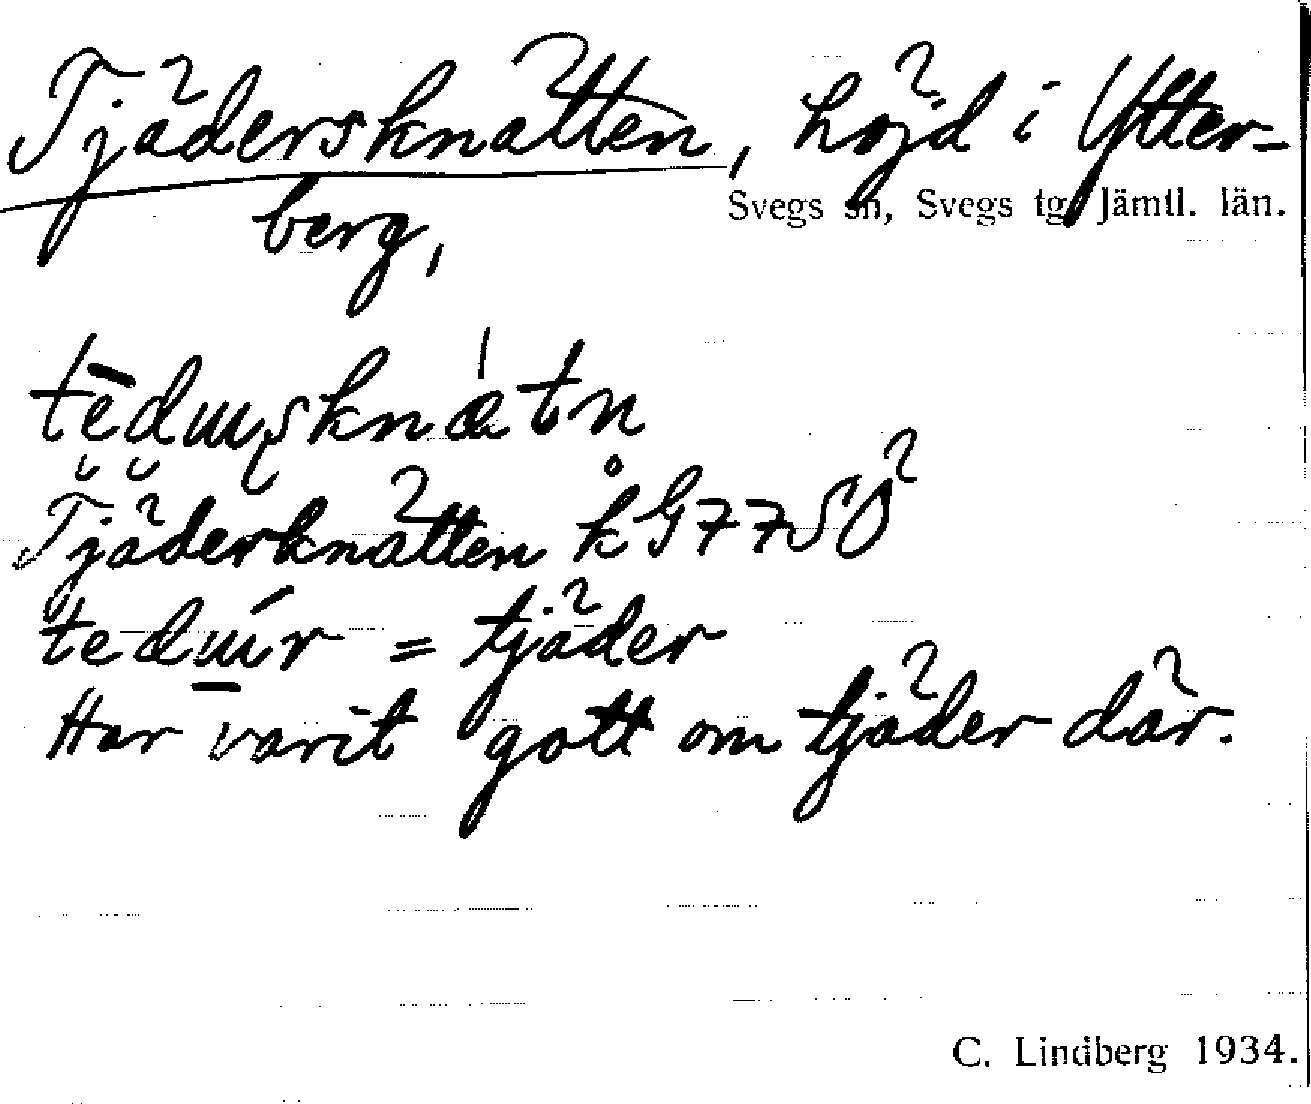 Tjädersknätten, höjd i Ytter-
Svegs sn, Svegs tg. Jämtl. län.
berg,
Tjäderknätten k G77SÖ
= tjäder
Har varit gott om tjäder där.
C. Lindberg 1934.